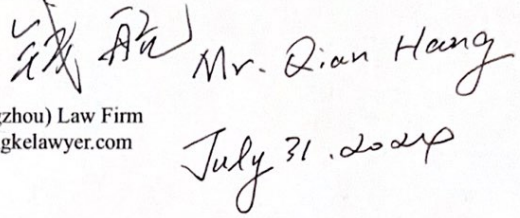 钱航 Mr. Qian Hang
zhou) Law Firm
gkelawyer.com
July 31. 2024